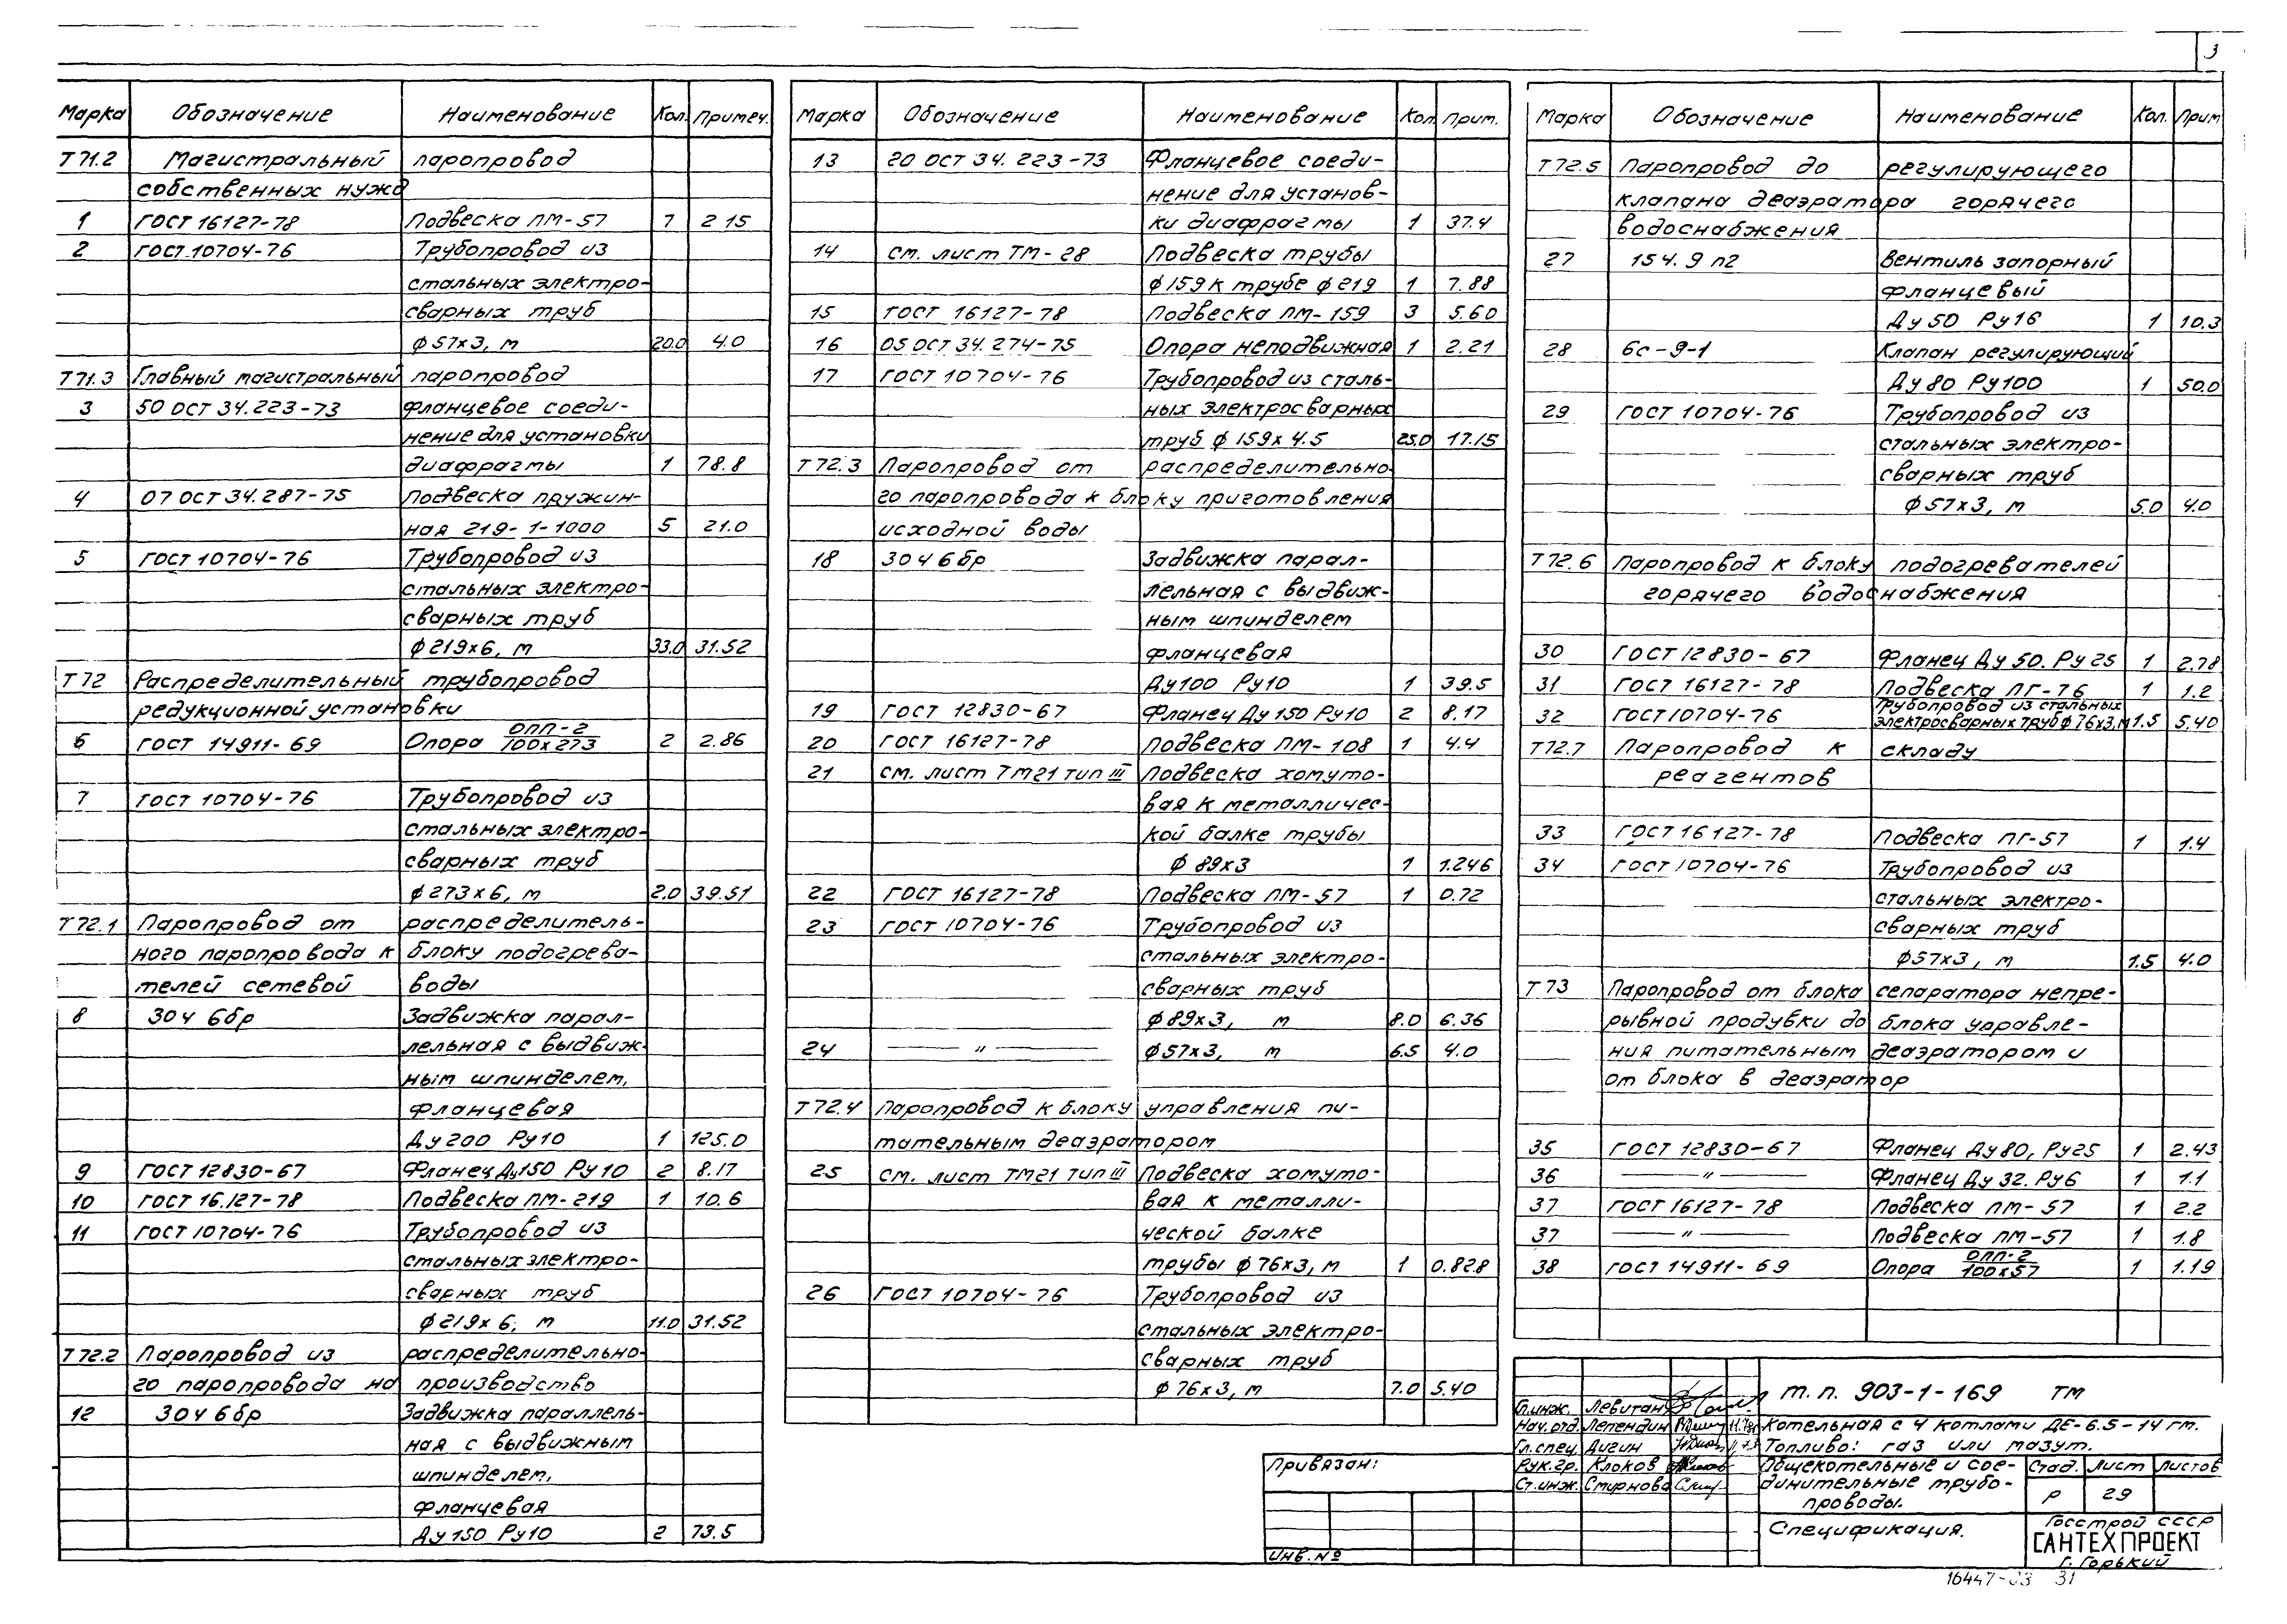 3
Марка Обозначение Наименование Кол. Примеч.
Т71.2 Магистральный паропровод
собственных нужд
1 ГОСТ 16127-78 Подвеска ПМ-57 7 2.15
2 ГОСТ 10704-76 Трубопровод из
стальных электро-
сварных труб
ф57х3, м 20.0 4.0
Т71.3 Главный магистральный паропровод
3 50 ОСТ 34.223-73 Фланцевое соеди-
нение для установки
диафрагмы 1 78.8
4 07 ОСТ 34.287-75 Подвеска пружин-
ная 219-1-1000 5 21.0
5 ГОСТ 10704-76 Трубопровод из
стальных электро-
сварных труб
ф219х6, м 33.0 31.52
Т72 Распределительный трубопровод
редукционной установки
6 ГОСТ 14911-69 Опора ОПП-2/100х273 2 2.86
7 ГОСТ 10704-76 Трубопровод из
стальных электро-
сварных труб
ф273х6, м 2.0 39.51
Т72.1 Паропровод от распределитель-
ного паропровода к блоку подогрева-
телей сетевой воды
8 30ч 6бр Задвижка парал-
лельная с выдвиж-
ным шпинделем,
фланцевая
Ду200 Ру10 1 125.0
9 ГОСТ 12830-67 Фланец Ду150 Ру10 2 8.17
10 ГОСТ 16127-78 Подвеска ПМ-219 1 10.6
11 ГОСТ 10704-76 Трубопровод из
стальных электро-
сварных труб
ф219х6, м 11.0 31.52
Т72.2 Паропровод из распределительно-
го паропровода на производство
12 30ч 6бр Задвижка параллель-
ная с выдвижным
шпинделем,
фланцевая
Ду150 Ру10 2 73.5
Марка Обозначение Наименование Кол. Прим.
13 20 ОСТ 34.223-73 Фланцевое соеди-
нение для установ-
ки диафрагмы 1 37.4
14 см. лист ТМ-28 Подвеска трубы
ф159 к трубе ф219 1 7.88
15 ГОСТ 16127-78 Подвеска ПМ-159 3 5.60
16 05 ОСТ 34.274-75 Опора неподвижная 1 2.21
17 ГОСТ 10704-76 Трубопровод из сталь-
ных электросварных
труб ф159х4.5 25.0 17.15
Т72.3 Паропровод от распределительно-
го паропровода к блоку приготовления
исходной воды
18 30ч 6бр Задвижка парал-
лельная с выдвиж-
ным шпинделем
фланцевая
Ду100 Ру10 1 39.5
19 ГОСТ 12830-67 Фланец Ду150 Ру10 2 8.17
20 ГОСТ 16127-78 Подвеска ПМ-108 1 4.4
21 см. лист ТМ21 тип III Подвеска хомуто-
вая к металличес-
кой балке трубы
ф89х3 1 1.246
22 ГОСТ 16127-78 Подвеска ПМ-57 1 0.72
23 ГОСТ 10704-76 Трубопровод из
стальных электро-
сварных труб
ф89х3, м 8.0 6.36
24 — " — ф57х3, м 6.5 4.0
Т72.4 Паропровод к блоку управления пи-
тательным деаэратором
25 см. лист ТМ21 тип III Подвеска хомуто-
вая к металли-
ческой балке
трубы ф76х3, м 1 0.828
26 ГОСТ 10704-76 Трубопровод из
стальных электро-
сварных труб
ф76х3, м 7.0 5.40
Марка Обозначение Наименование Кол. Прим.
Т72.5 Паропровод до регулирующего
клапана деаэратора горячего
водоснабжения
27 15ч. 9п2 Вентиль запорный
фланцевый
Ду50 Ру16 1 10.3
28 6с-9-1 Клапан регулирующий
Ду80 Ру100 1 50.0
29 ГОСТ 10704-76 Трубопровод из
стальных электро-
сварных труб
ф57х3, м 5.0 4.0
Т72.6 Паропровод к блоку подогревателей
горячего водоснабжения
30 ГОСТ 12830-67 Фланец Ду50. Ру25 1 2.78
31 ГОСТ 16127-78 Подвеска ПГ-76 1 1.2
32 ГОСТ 10704-76 Трубопровод из стальных
электросварных труб ф76х3, м 1.5 5.40
Т72.7 Паропровод к складу
реагентов
33 ГОСТ 16127-78 Подвеска ПГ-57 1 1.4
34 ГОСТ 10704-76 Трубопровод из
стальных электро-
сварных труб
ф57х3, м 1.5 4.0
Т73 Паропровод от блока сепаратора непре-
рывной продувки до блока управле-
ния питательным деаэратором и
от блока в деаэратор
35 ГОСТ 12830-67 Фланец Ду80, Ру25 1 2.43
36 — " — Фланец Ду32. Ру6 1 1.1
37 ГОСТ 16127-78 Подвеска ПМ-57 1 2.2
37 — " — Подвеска ПМ-57 1 1.8
38 ГОСТ 14911-69 Опора ОПП-2/100х57 1 1.19
Привязан:
Инв.№
Гл.инж. Левитан
Нач.отд. Лепендин
Гл.спец. Дигин
Рук.гр. Клоков
Ст.инж. Смирнова
т.п. 903-1-169 ТМ
Котельная с 4 котлами ДЕ-6.5-14 гм.
Топливо: газ или мазут.
Общекотельные и сое-
динительные трубо-
проводы.
Стад. Лист Листов
Р 29
Спецификация.
Госстрой СССР
САНТЕХПРОЕКТ
г. Горький
16447-03 31